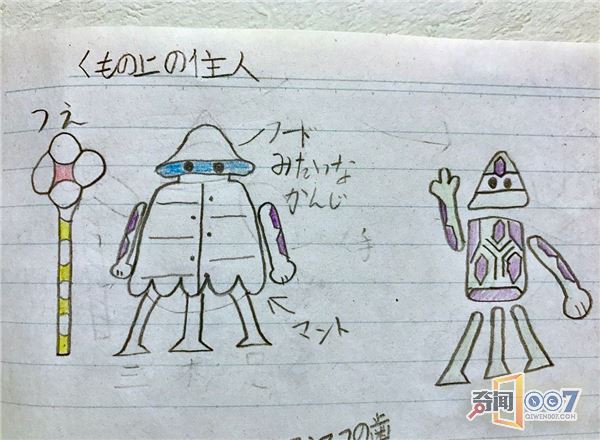 くもの上の住人
つえ
フード
みたいな
かんじ
手
マント
の歯
奇闻007
QIWEN007.COM